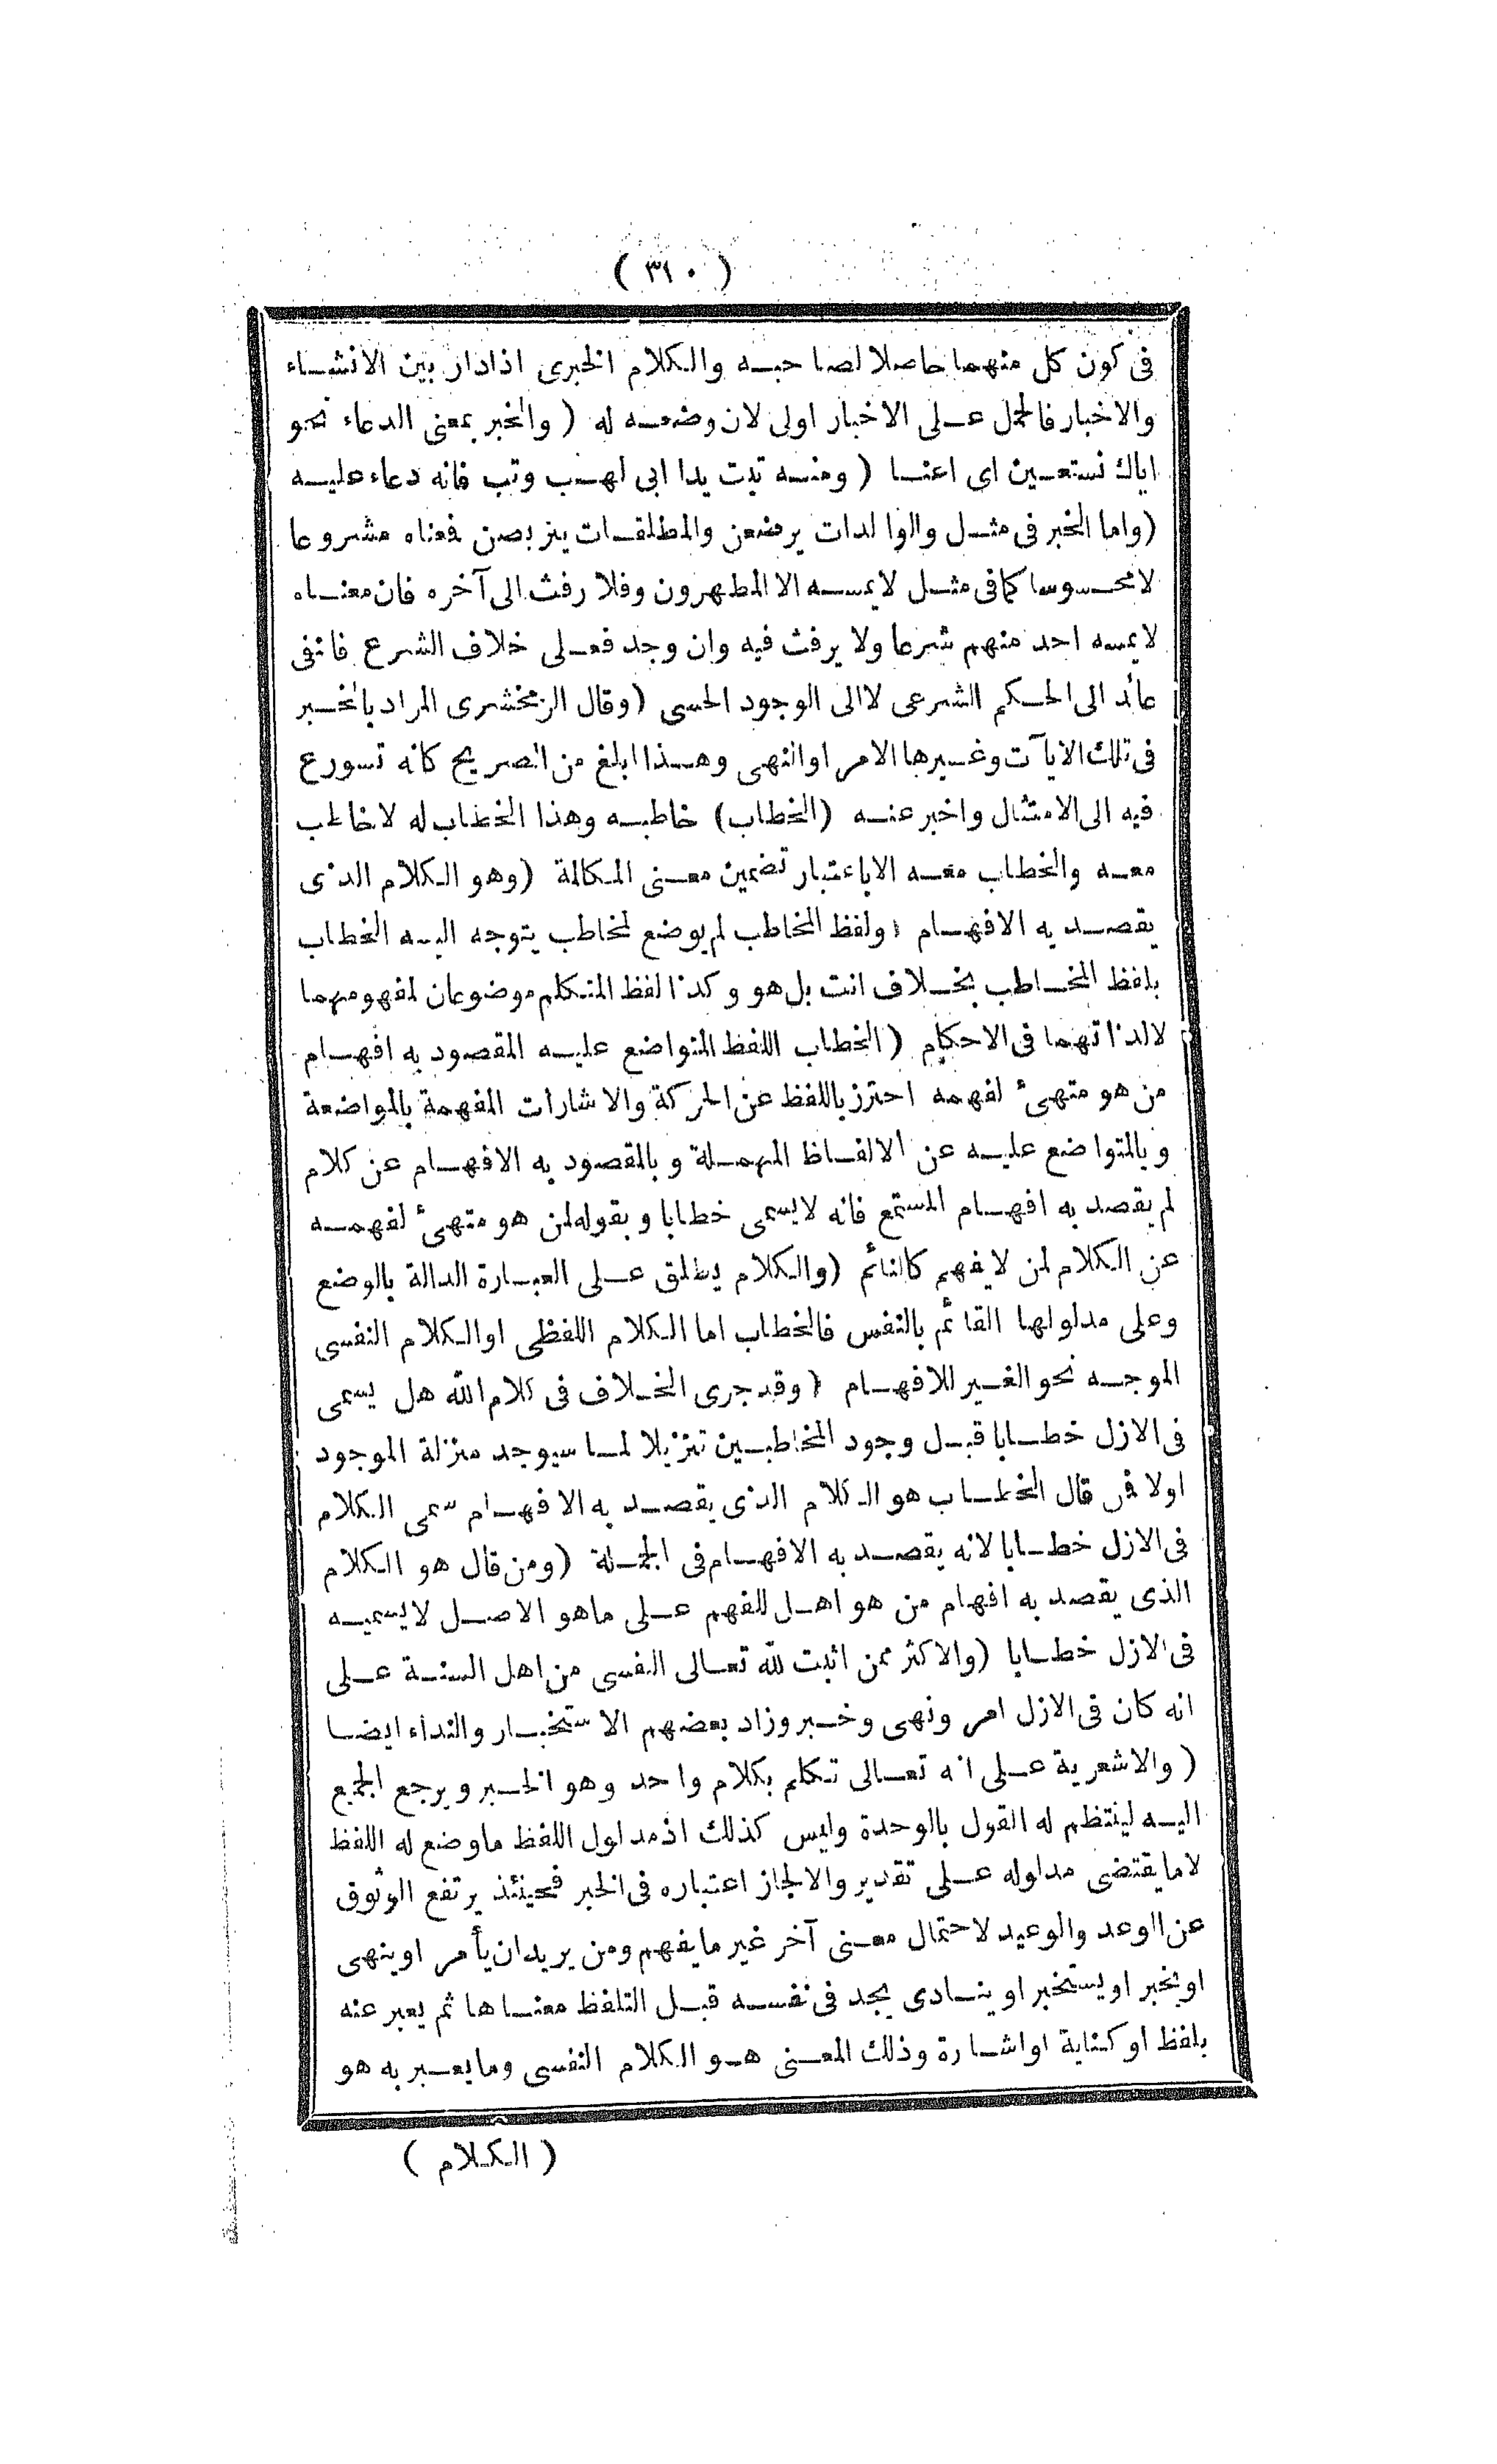 ( ٣١٠ )
فى كون كل منهما حاصلا لصاحبه والكلام الخبرى اذادار بين الانشاء
والاخبار فالحمل على الاخبار اولى لان وضعه له ( والخبر بمعنى الدعاء نحو
اياك نستعين اى اعنا ( ومنه تبت يدا ابى لهب وتب فانه دعاء عليه
(واما الخبر فى مثل والوالدات يرضعن والمطلقات يتربصن فمعناه مشروعا
لا محسوسا كما فى مثل لا يمسه الا المطهرون وفلا رفث الى آخره فان معناه
لا يمسه احد منهم شرعا ولا يرفث فيه وان وجد فعلى خلاف الشرع فالنفى
عائد الى الحكم الشرعى لا الى الوجود الحسى (وقال الزمخشرى المراد بالخبر
فى تلك الايآت وغيرها الامر او النهى وهذا ابلغ من الصريح كانه تسورع
فيه الى الامتثال واخبر عنه (الخطاب) خاطبه وهذا الخطاب له لا خاطب
معه والخطاب معه الا باعتبار تضمين معنى المكالمة (وهو الكلام الذى
يقصد به الافهام ( ولفظ المخاطب لم يوضع لمخاطب يتوجه اليه الخطاب
بلفظ المخاطب بخلاف انت بل هو وكذا لفظ المتكلم موضوعان لمفهومهما
لا لذاتهما فى الاحكام (الخطاب اللفظ المتواضع عليه المقصود به افهام
من هو متهيئ لفهمه احترز باللفظ عن الحركة والاشارات المفهمة بالمواضعة
وبالمتواضع عليه عن الالفاظ المهملة وبالمقصود به الافهام عن كلام
لم يقصد به افهام المستمع فانه لا يسمى خطابا وبقوله لمن هو متهيئ لفهمه
عن الكلام لمن لا يفهم كالنائم (والكلام يطلق على العبارة الدالة بالوضع
وعلى مدلولها القائم بالنفس فالخطاب اما الكلام اللفظى او الكلام النفسى
الموجه نحو الغير للافهام ( وقد جرى الخلاف فى كلام الله هل يسمى
فى الازل خطابا قبل وجود المخاطبين تنزيلا لما سيوجد منزلة الموجود
اولا فمن قال الخطاب هو الكلام الذى يقصد به الافهام سمى الكلام
فى الازل خطابا لانه يقصد به الافهام فى الجملة (ومن قال هو الكلام
الذى يقصد به افهام من هو اهل للفهم على ماهو الاصل لا يسميه
فى الازل خطابا (والاكثر ممن اثبت لله تعالى النفسى من اهل السنة على
انه كان فى الازل امر ونهى وخبر وزاد بعضهم الاستخبار والنداء ايضا
( والاشعرية على انه تعالى تكلم بكلام واحد وهو الخبر ويرجع الجميع
اليه لينتظم له القول بالوحدة وليس كذلك اذ مدلول اللفظ ماوضع له اللفظ
لا ما يقتضى مدلوله على تقدير والا لجاز اعتباره فى الخبر فحينئذ يرتفع الوثوق
عن الوعد والوعيد لاحتمال معنى آخر غير ما يفهم ومن يريد ان يأمر او ينهى
او يخبر او يستخبر او ينادى يجد فى نفسه قبل التلفظ معناها ثم يعبر عنه
بلفظ او كتابة او اشارة وذلك المعنى هو الكلام النفسى وما يعبر به هو
( الكلام )